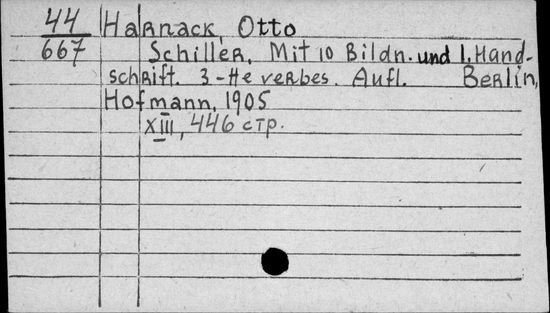 44 Harnack, Otto
667 Schiller. Mit 10 Bildn. und 1. Hand-
schrift. 3-te verbes. Aufl. Berlin,
Hofmann, 1905
XIII, 446 стр.